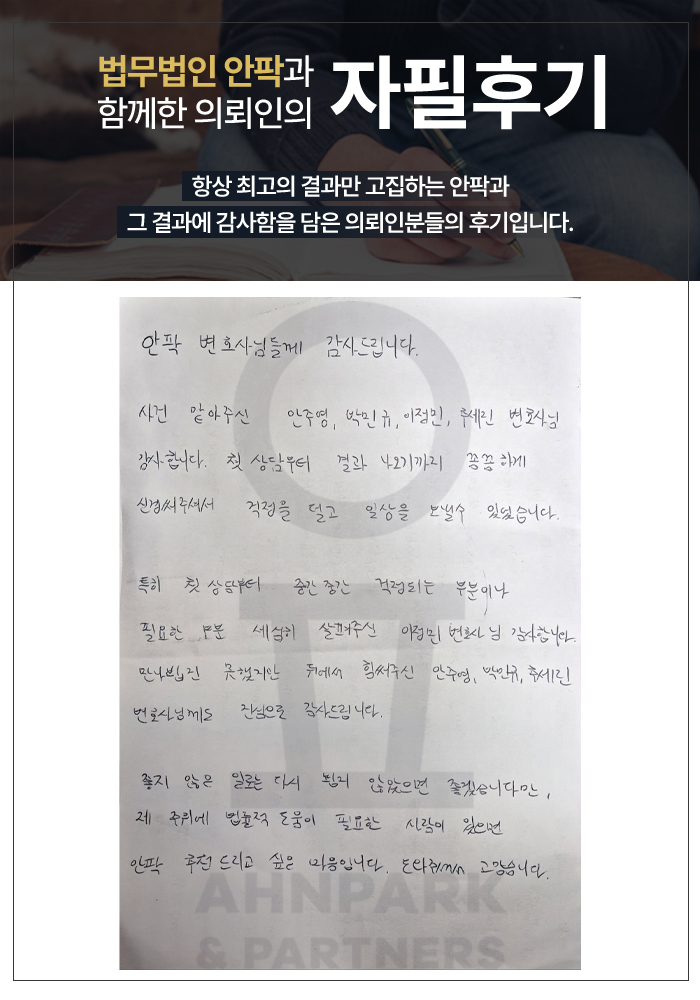 법무법인 안팍과
함께한 의뢰인의
자필후기
항상 최고의 결과만 고집하는 안팍과
그 결과에 감사함을 담은 의뢰인분들의 후기입니다.
안팍 변호사님들께 감사드립니다.
사건 맡아주신 안주영, 박민규, 이정민, 추세린 변호사님
감사합니다. 첫 상담부터 결과 나오기까지 꼼꼼하게
신경써주셔서 걱정을 덜고 일상을 보낼수 있었습니다.
특히 첫 상담부터 중간중간 걱정되는 부분이나
필요한 부분 세심히 살펴주신 이정민 변호사님 감사합니다.
만나뵙진 못했지만 뒤에서 힘써주신 안주영, 박민규, 추세린
변호사님께도 진심으로 감사드립니다.
좋지 않은 일로는 다시 뵙지 않았으면 좋겠습니다만,
제 주위에 법률적 도움이 필요한 사람이 있으면
안팍 추천드리고 싶은 마음입니다. 도와줘서 고맙습니다.
AHNPARK
& PARTNERS